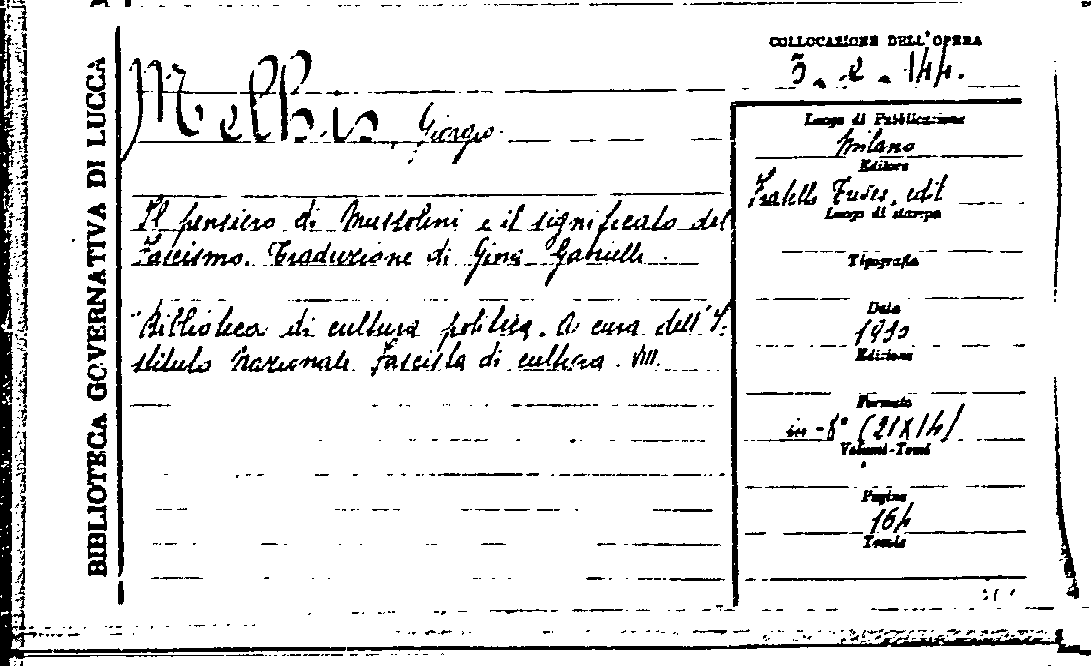 BIBLIOTECA GOVERNATIVA DI LUCCA
COLLOCAZIONE DELL'OPERA
Giorgio
Il pensiero di Mussolini e il significato del
Fascismo. Traduzione di Gina Gabrielli
"Biblioteca di cultura politica. A cura dell'I-
stituto Nazionale Fascista di cultura. VIII.
Luogo di Pubblicazione
Milano
Editore
Fratelli Treves, edit
Luogo di stampa
Tipografia
Data
1930
Edizione
Formato
in-8° (21X14)
Volumi-Tomi
Pagine
164
Tavole